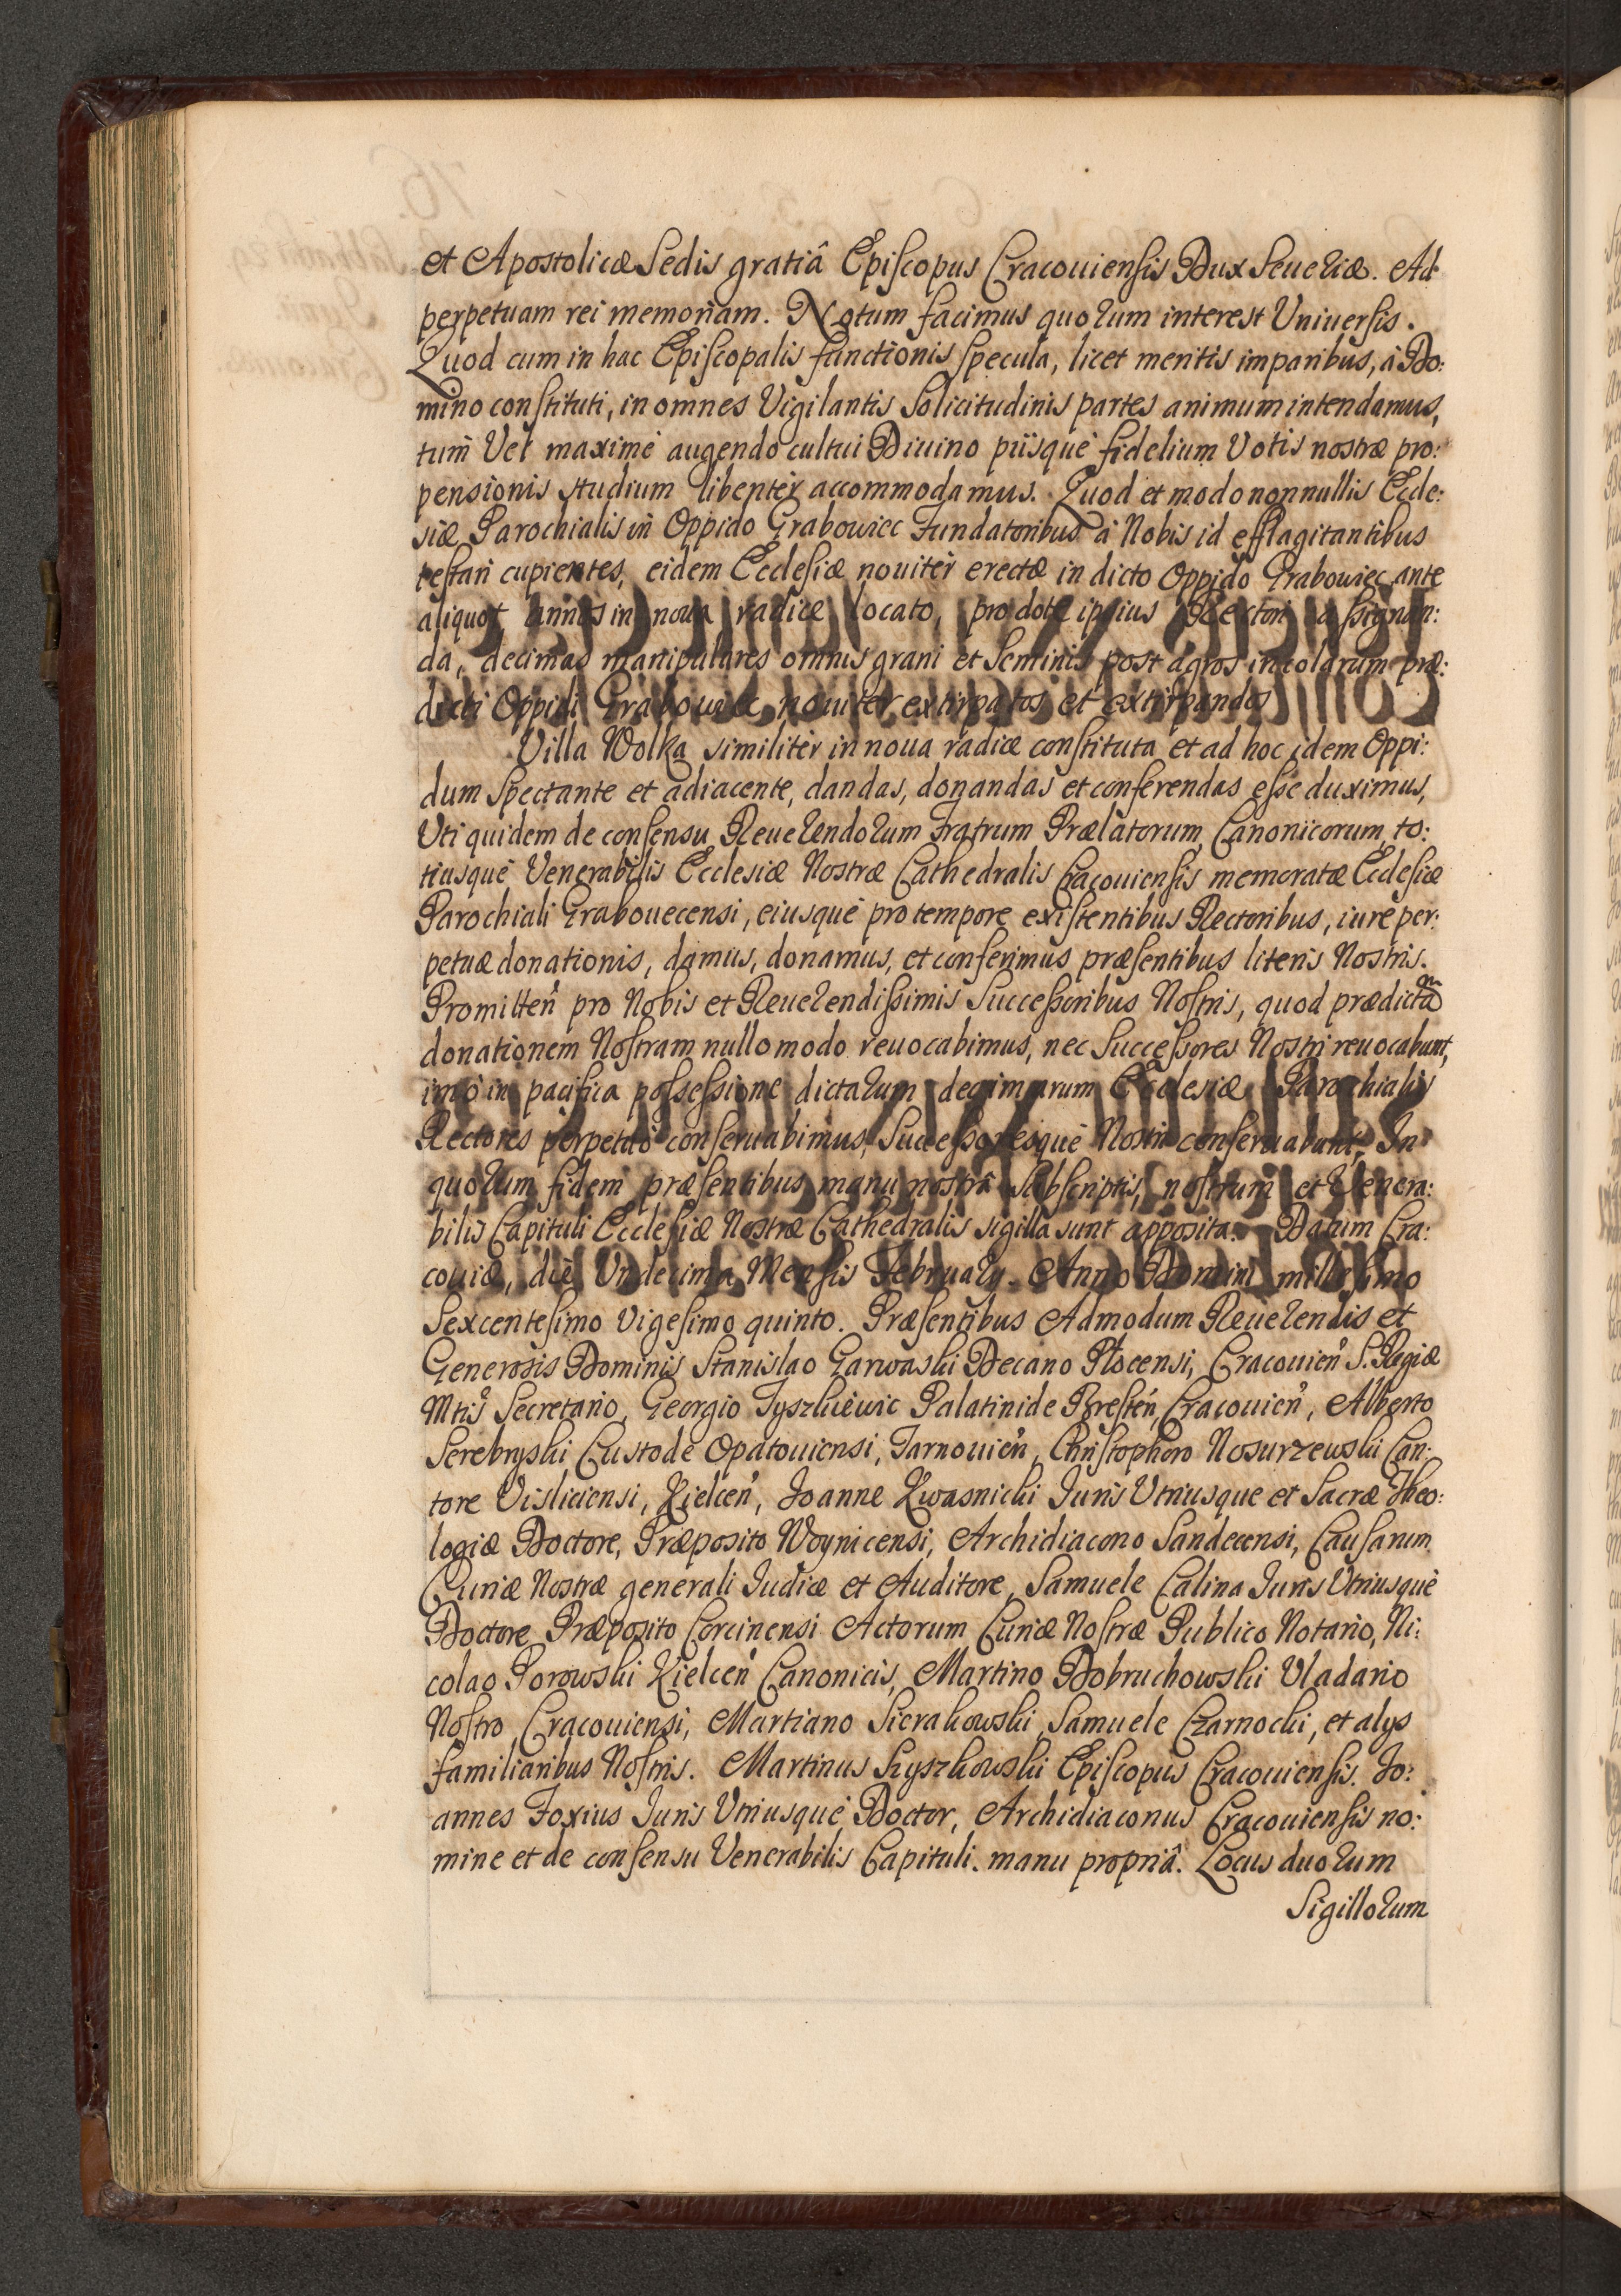 et Apostolicæ Sedis gratiâ Episcopus Cracouiensis Dux Seueriæ. Ad
perpetuam rei memoriam. Notum facimus quorum interest Uniuersis.
Quod cum in hac Episcopalis functionis specula, licet meritis imparibus, à Do:
mino constituti, in omnes Vigilantis Solicitudinis partes animum intendamus,
tum Vel maximè augendo cultui Diuino piisque fidelium Votis nostræ pro:
pensionis studium libentèr accommodamus. Quod et modo nonnullis Eccle:
siæ Parochialis in Oppido Grabowiec Fundatoribus à Nobis id efflagitantibus
testari cupientes, eidem Ecclesiæ nouitèr erectæ in dicto Oppido Grabowiec ante
aliquot annos in noua radice locato, pro dote ipsius Rectori assignan:
da, decimas manipulares omnis grani et Seminis post agros incolarum præ:
dicti Oppidi Grabowiec nouiter extirpatos et extirpandos
Villa Wolka similitèr in noua radice constituta et ad hoc idem Oppi:
dum Spectante et adiacente, dandas, donandas et conferendas esse duximus,
Vti quidem de consensu Reuerendorum Fratrum Prælatorum, Canonicorum, to:
tiusque Venerabilis Ecclesiæ Nostræ Cathedralis Cracouiensis memoratæ Ecclesiæ
Parochiali Grabouecensi, eiusque pro tempore existentibus Rectoribus, iure per:
petuæ donationis, damus, donamus, et conferimus præsentibus literis Nostris.
Promitteñ pro Nobis et Reuerendissimis Successoribus Nostris, quod prædictam
donationem Nostram nullo modo reuocabimus, nec Successores Nostri reuocabunt,
imò in pacifica possessione dictarum decimarum Ecclesiæ Parochialis
Rectores perpetuò conseruabimus, Successoresque Nostri conseruabunt. In
quorum fidem præsentibus manu nostrâ Subscriptis, nostrum et Venera:
bilis Capituli Ecclesiæ Nostræ Cathedralis sigilla sunt apposita. Datum Cra:
couiæ, die Vndecima Mensis February. Anno Domini millesimo
Sexcentesimo Vigesimo quinto. Præsentibus Admodum Reuerendis et
Generosis Dominis Stanislao Garwaski Decano Plocensi, Cracouieñ S. Regiæ
Mtis Secretario, Georgio Tyszkiewic Palatinide Bresteń, Cracouieñ, Alberto
Serebryski Custode Opatouiensi, Tarnouieñ, Christophoro Nosurzewski Can:
tore Visliciensi, Kielceñ, Joanne Kwasnicki Juris Utriusque et Sacræ Theo:
logiæ Doctore, Præposito Woynicensi, Archidiacono Sandecensi, Causarum
Curiæ Nostræ generali Judice et Auditore, Samuele Calina Juris Vtriusque
Doctore Præposito Corcinensi Actorum Curiæ Nostræ Publico Notario, Ni:
colao Porowski Kielceñ Canonicis, Martino Dobruchowski Vladario
Nostro Cracouiensi, Martiano Sierakowski, Samuele Czarnocki, et alys
familiaribus Nostris. Martinus Szyszkowski Episcopus Cracouiensis. Jo:
annes Foxius Juris Vtriusque Doctor, Archidiaconus Cracouiensis no:
mine et de consensu Venerabilis Capituli. manu propriâ. Locus duorum
Sigillorum